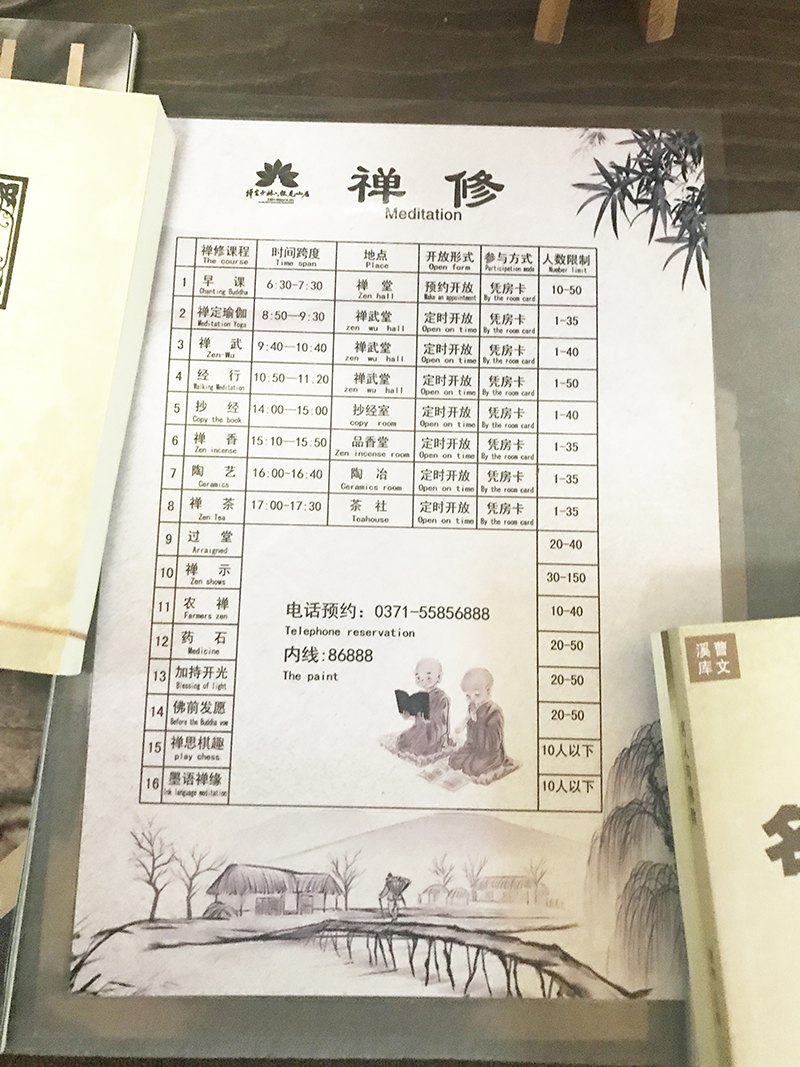 禅 修
Meditation
禅修课程 时间跨度 地点 开放形式 参与方式 人数限制
The course Time span Place Open form Participation mode Number limit
1 早 课 6:30-7:30 禅 堂 预约开放 凭房卡 10-50
Chanting Buddha Zen hall Make an appointment By the room card
2 禅定瑜伽 8:50—9:30 禅武堂 定时开放 凭房卡 1-35
Meditation Yoga zen wu hall Open on time By the room card
3 禅 武 9:40—10:40 禅武堂 定时开放 凭房卡 1-40
Zen-Wu zen wu hall Open on time By the room card
4 经 行 10:50—11.20 禅武堂 定时开放 凭房卡 1-50
Walking Meditation zen wu hall Open on time By the room card
5 抄 经 14:00—15:00 抄经室 定时开放 凭房卡 1-40
Copy the book copy room Open on time By the room card
6 禅 香 15:10—15:50 品香堂 定时开放 凭房卡 1-35
Zen incense Zen incense room Open on time By the room card
7 陶 艺 16:00-16:40 陶 冶 定时开放 凭房卡 1-35
Ceramics Ceramics room Open on time By the room card
8 禅 茶 17:00-17:30 茶 社 定时开放 凭房卡 1-35
Zen Tea Teahouse Open on time By the room card
9 过 堂 20-40
Arraigned
10 禅 示 30-150
Zen shows
11 农 禅 10-40
Farmers zen
12 药 石 20-50
Medicine
13 加持开光 20-50
Blessing of light
14 佛前发愿 20-50
Before the Buddha vow
15 禅思棋趣 10人以下
play chess
16 墨语禅缘 10人以下
Ink language meditation
电话预约：0371-55856888
Telephone reservation
内线:86888
The paint
曹溪
文库
名